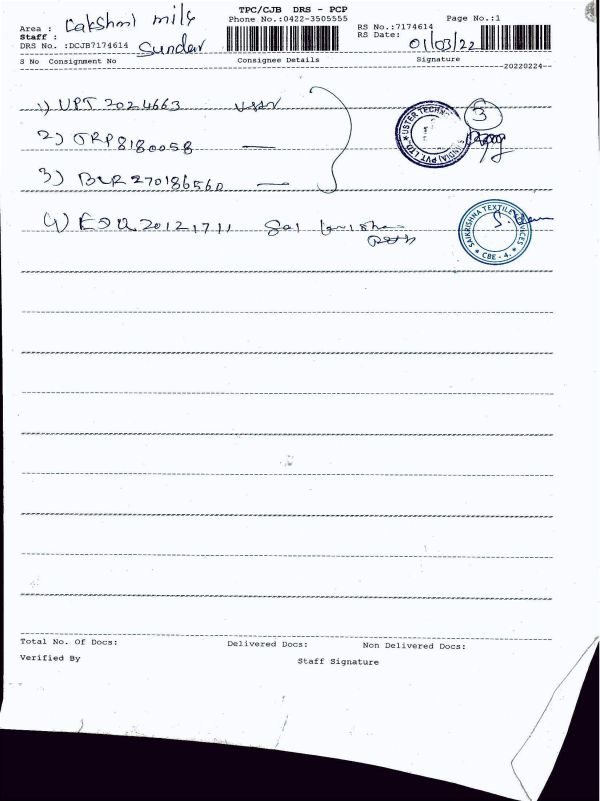 TPC/CJB DRS - PCP
Area : Lakshmi mills
Phone No.:0422-3505555
RS No.:7174614
Page No.:1
Staff : Sundar
RS Date: 01/03/22
DRS No. :DCJB7174614
S No Consignment No Consignee Details Signature
20220224
1) UPT 2024663
USTER TECHN
(INDIA) PVT LTD
3
2) TRP8180058 —
3) BLR 270186560 —
4) ESU 20121711 Sai
SAIKRISHNA TEXTILE SERVICES
* CBE - 4. *
Total No. Of Docs: Delivered Docs: Non Delivered Docs:
Verified By
Staff Signature